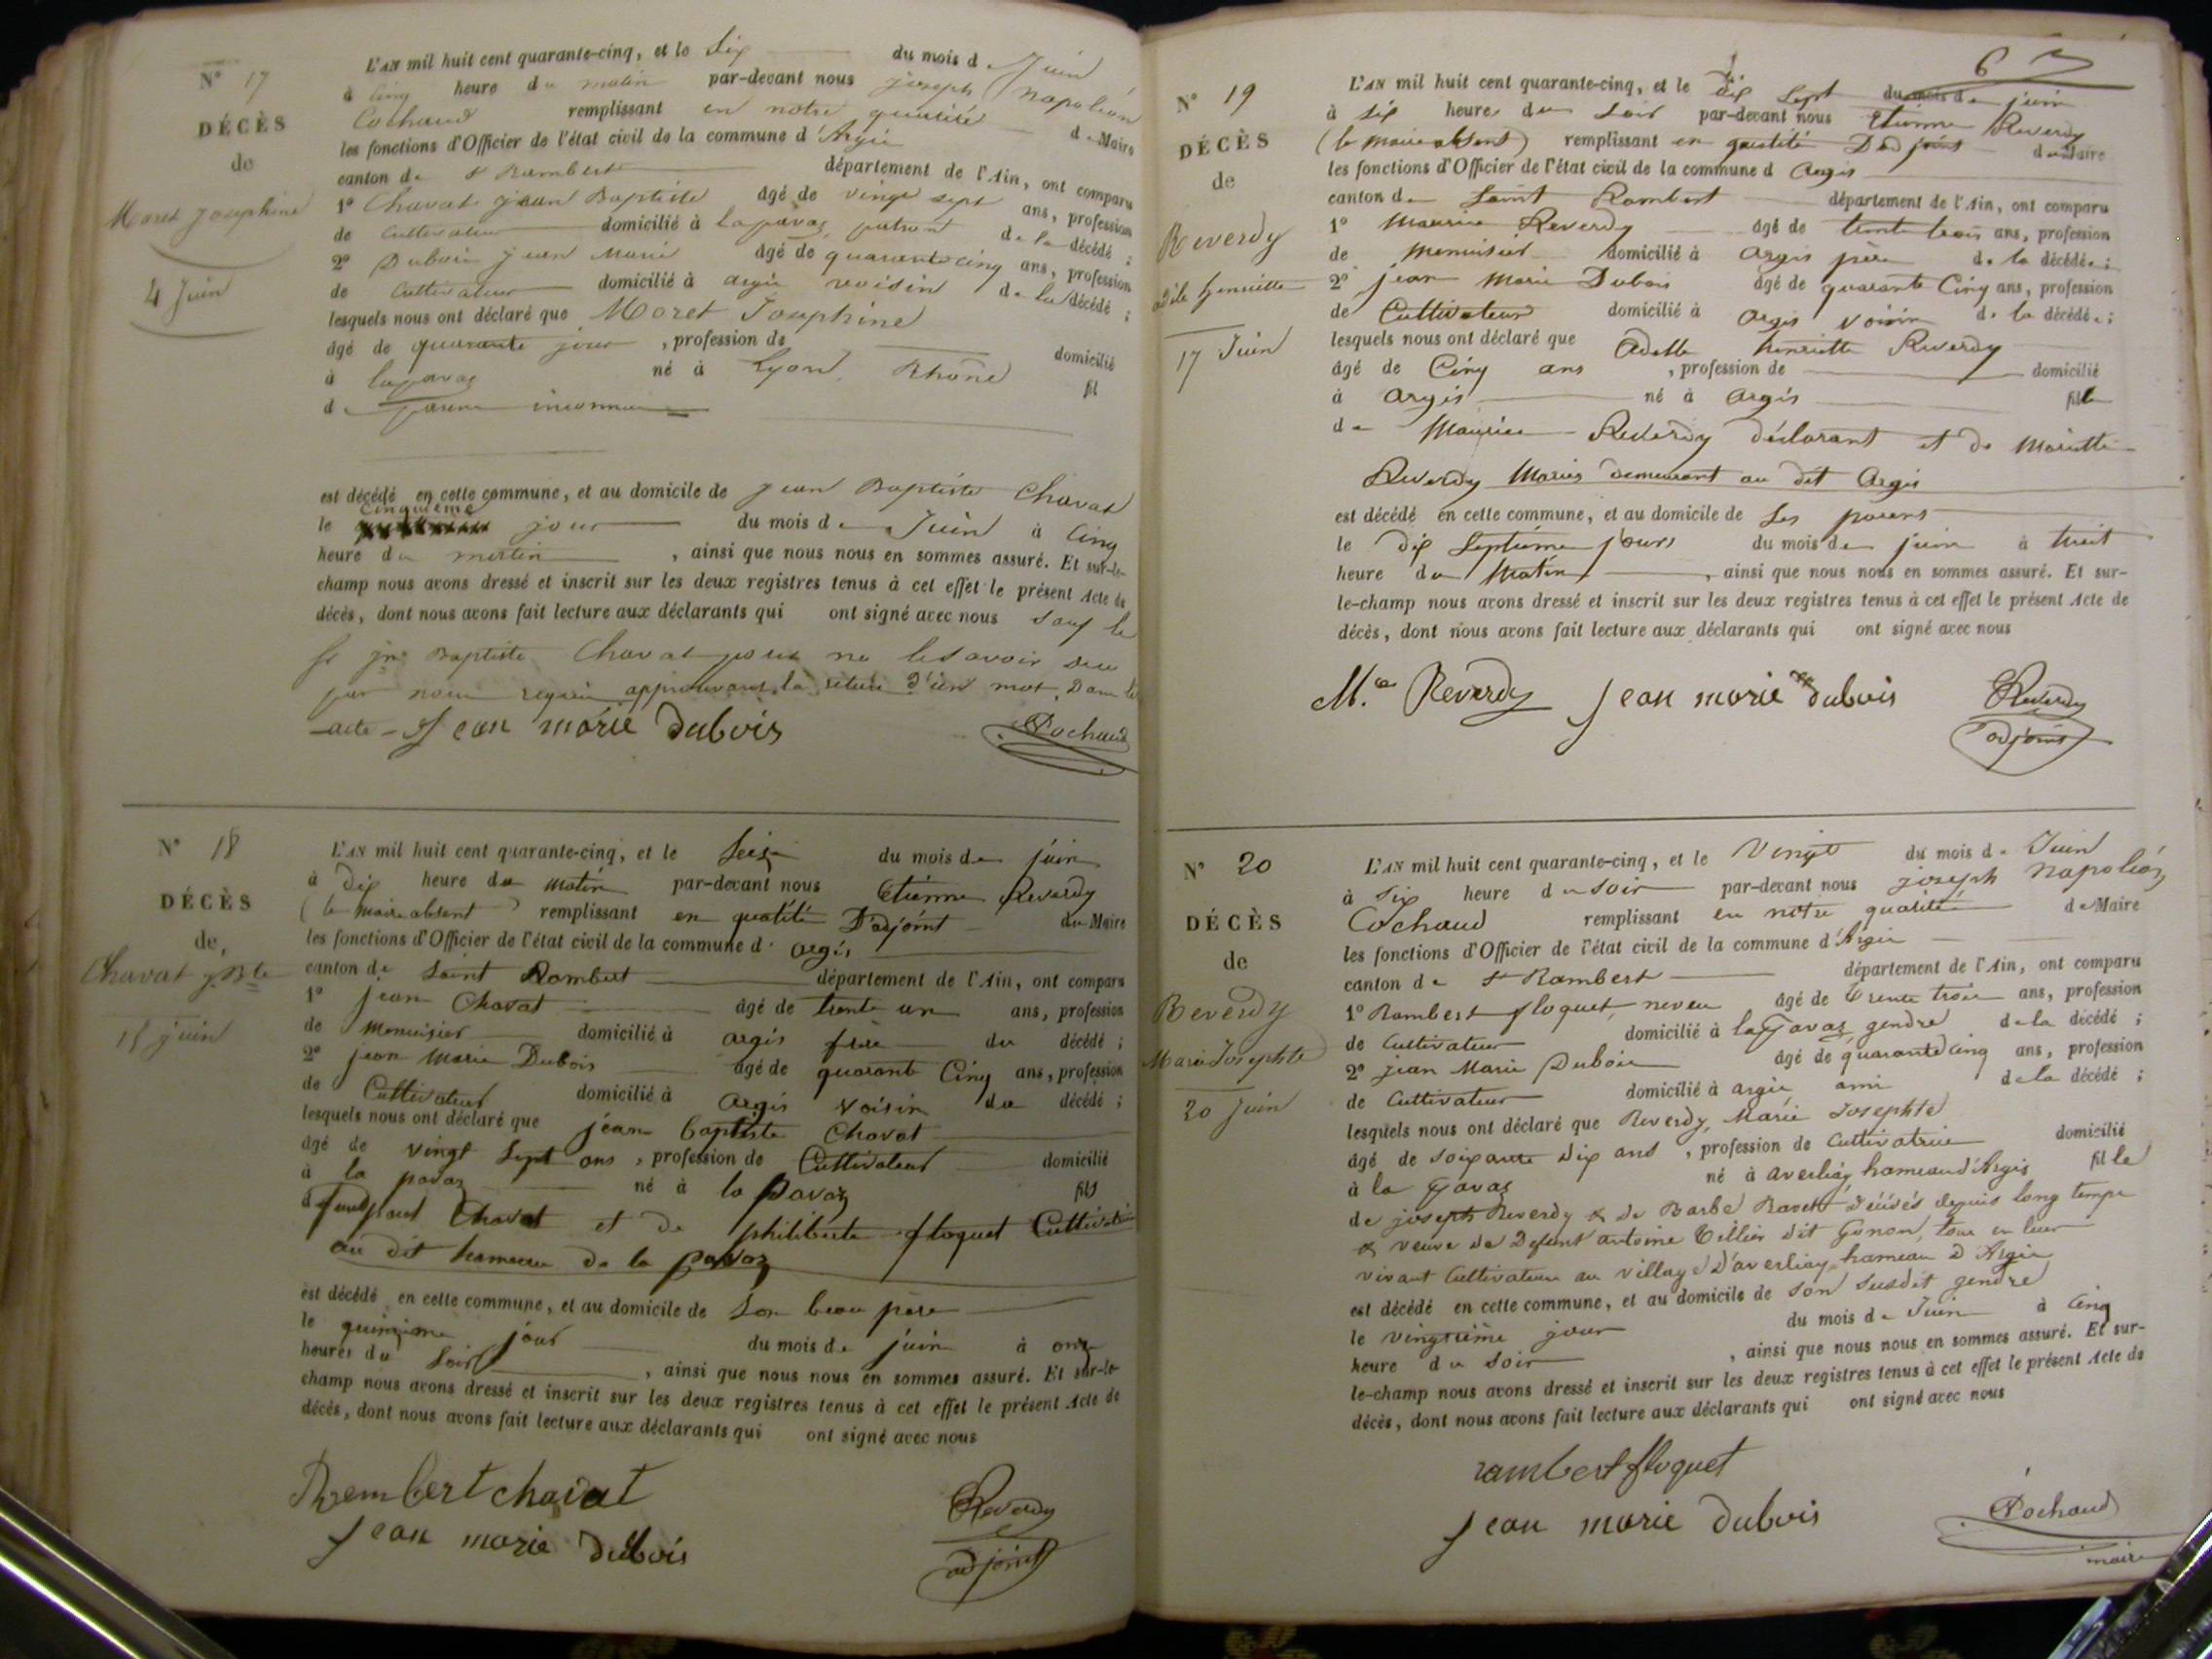 N° 17
DÉCÈS
de
Moret Josephine
4 Juin
L'AN mil huit cent quarante-cinq, et le Six du mois de Juin
à cinq heure du matin par-devant nous joseph Napoléon
Cochaud remplissant en notre qualité de Maire
les fonctions d'Officier de l'état civil de la commune d'Argis
canton de St Rambert département de l'Ain, ont comparu
1° Chavat jean Baptiste âgé de vingt sept ans, profession
de cultivateur domicilié à lapavaz, patront de la décédé ;
2° Dubois jean Marie âgé de quarante cinq ans, profession
de cultivateur domicilié à argis voisin de la décédé ;
lesquels nous ont déclaré que Moret Josephine
âgé de quarante jour , profession de domicilié
à lapavaz né à Lyon, Rhône fil
de parens inconnu
est décédé en cette commune, et au domicile de jean Baptiste Chavat
cinquième
le jour du mois de Juin à cinq
heure du matin , ainsi que nous nous en sommes assuré. Et sur-le-
champ nous avons dressé et inscrit sur les deux registres tenus à cet effet le présent Acte de
décès, dont nous avons fait lecture aux déclarants qui ont signé avec nous sauf le
jn Baptiste Chavat pour ne le savoir
par nous requis approuvant la d'un mot dans le
acte - Jean marie dubois Cochaud
N° 18
DÉCÈS
de
Chavat j. Bte
15 juin
L'AN mil huit cent quarante-cinq, et le Seize du mois de juin
à Dix heure du matin par-devant nous Etienne Reverdy
(le maire absent) remplissant en qualité D'adjoint du Maire
les fonctions d'Officier de l'état civil de la commune d' argis
canton de Saint Rambert département de l'Ain, ont comparu
1° jean Chavat âgé de trente un ans, profession
de Menuisier domicilié à argis frère du décédé ;
2° jean Marie Dubois âgé de quarante Cinq ans, profession
de Cultivateur domicilié à argis voisin du décédé ;
lesquels nous ont déclaré que jean baptiste Chavat
âgé de vingt sept ans , profession de Cultivateur domicilié
à la pavaz né à la pavaz fils
Chavat et de philiberte floquet
au dit hameau de la pavaz
est décédé en cette commune, et au domicile de son beau père
le quinzième jour du mois de juin à onze
heures du soir , ainsi que nous nous en sommes assuré. Et sur-le-
champ nous avons dressé et inscrit sur les deux registres tenus à cet effet le présent Acte de
décès, dont nous avons fait lecture aux déclarants qui ont signé avec nous
Rembert chavat Reverdy
Jean marie dubois adjoint
67
N° 19
DÉCÈS
de
Reverdy
adèle henriette
17 Juin
L'AN mil huit cent quarante-cinq, et le dix sept du mois de juin
à six heures du soir par-devant nous Etienne Reverdy
(le maire absent) remplissant en qualité D'adjoint du Maire
les fonctions d'Officier de l'état civil de la commune d argis
canton de Saint Rambert département de l'Ain, ont comparu
1° Maurice Reverdy âgé de trente trois ans, profession
de Menuisier domicilié à argis père de la décédée ;
2° jean Marie Dubois âgé de quarante Cinq ans, profession
de Cultivateur domicilié à argis voisin de la décédée ;
lesquels nous ont déclaré que Adelle henriette Reverdy
âgé de Cinq ans , profession de domicilié
à argis né à argis fille
de Maurice Reverdy déclarant et de Mariette
Reverdy Mariés demeurant au dit argis
est décédé en cette commune, et au domicile de ses parens
le dix septième jours du mois de juin à huit
heure du Matin , ainsi que nous nous en sommes assuré. Et sur-
le-champ nous avons dressé et inscrit sur les deux registres tenus à cet effet le présent Acte de
décès, dont nous avons fait lecture aux déclarants qui ont signé avec nous
M.ce Reverdy Jean marie dubois Reverdy
adjoint
N° 20
DÉCÈS
de
Reverdy
Marie Josephte
20 Juin
L'AN mil huit cent quarante-cinq, et le Vingt du mois de Juin
à six heure du soir par-devant nous joseph Napoléon
Cochaud remplissant en notre qualité de Maire
les fonctions d'Officier de l'état civil de la commune d'Argis
canton de St Rambert département de l'Ain, ont comparu
1° Rambert floquet, neveu âgé de trente trois ans, profession
de Cultivateur domicilié à la pavaz gendre de la décédé ;
2° jean Marie Dubois âgé de quarante cinq ans, profession
de Cultivateur domicilié à argis ami de la décédé ;
lesquels nous ont déclaré que Reverdy, Marie Josephte
âgé de soixante dix ans , profession de Cultivatrice domicilié
à la pavaz né à averliaz hameau d'Argis fille
de joseph Reverdy & de Barbe Ravet décédés depuis long temps
& veuve de Defunt antoine tillier dit Gonon, tous en leur
vivant Cultivateurs au village D'averliaz hameau D'Argis
est décédé en cette commune, et au domicile de son susdit gendre
le vingtième jour du mois de Juin à cinq
heure du soir , ainsi que nous nous en sommes assuré. Et sur-
le-champ nous avons dressé et inscrit sur les deux registres tenus à cet effet le présent Acte de
décès, dont nous avons fait lecture aux déclarants qui ont signé avec nous
rambert floquet
Jean marie dubois Cochaud
maire